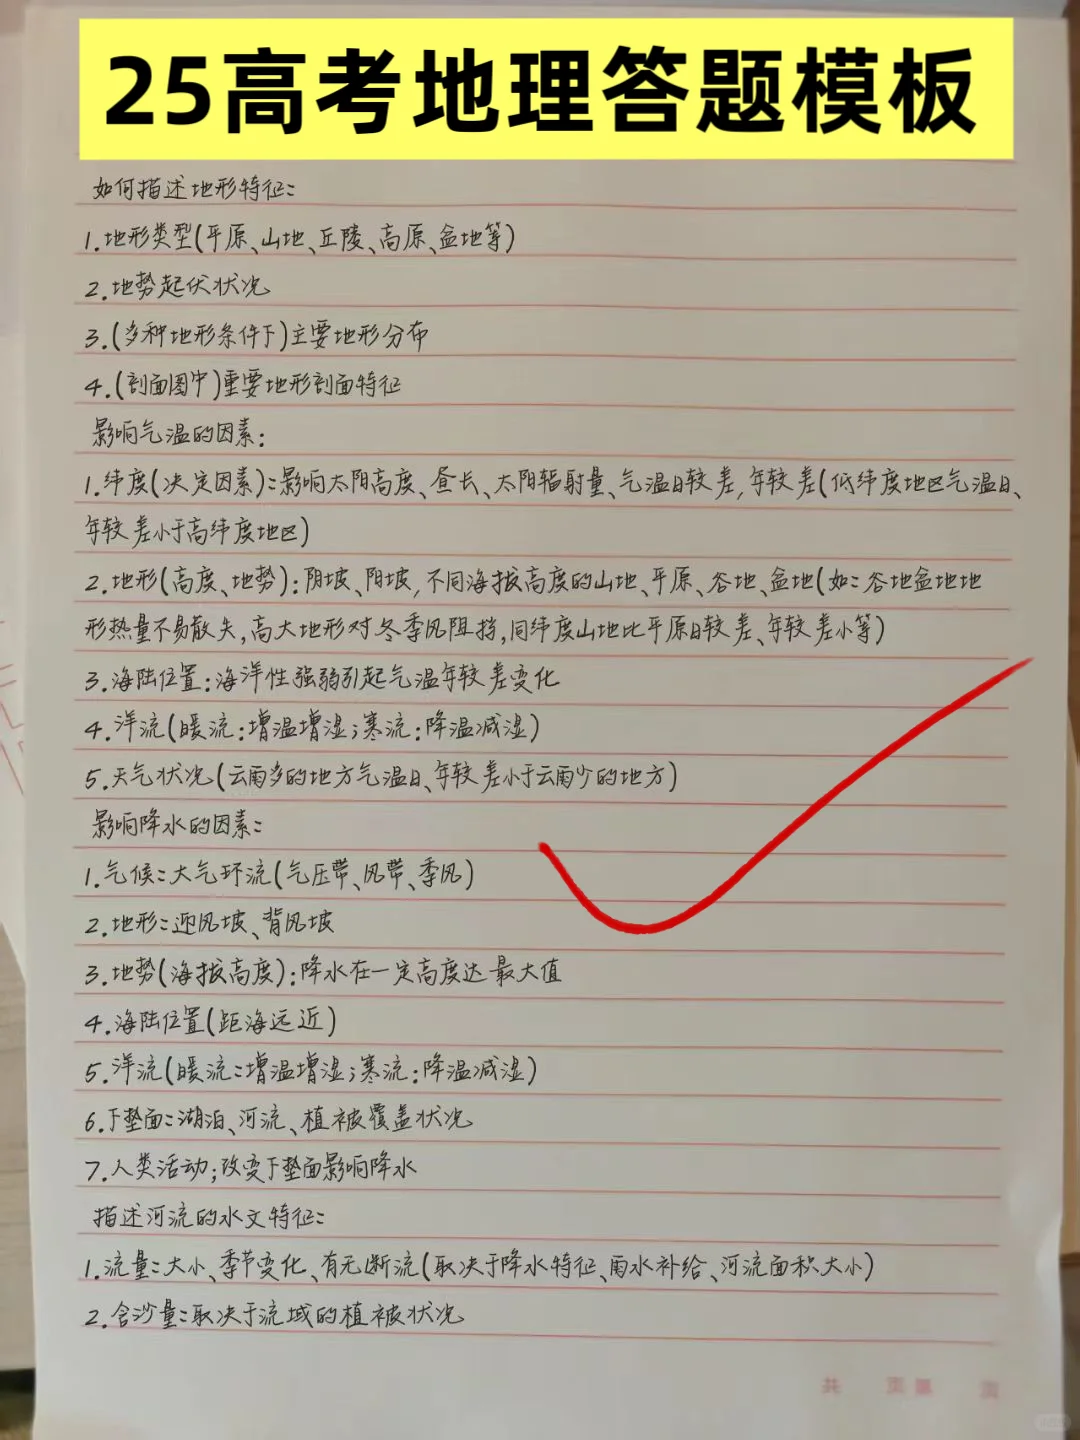 25高考地理答题模板
如何描述地形特征:
1.地形类型(平原、山地、丘陵、高原、盆地等)
2.地势起伏状况
3.(多种地形条件下)主要地形分布
4.(剖面图中)重要地形剖面特征
影响气温的因素:
1.纬度(决定因素):影响太阳高度、昼长、太阳辐射量、气温日较差,年较差(低纬度地区气温日、
年较差小于高纬度地区)
2.地形(高度、地势):阴坡、阳坡,不同海拔高度的山地、平原、谷地、盆地(如:谷地盆地地
形热量不易散失,高大地形对冬季风阻挡,同纬度山地比平原日较差、年较差小等)
3.海陆位置:海洋性强弱引起气温年较差变化
4.洋流(暖流:增温增湿;寒流:降温减湿)
5.天气状况(云雨多的地方气温日、年较差小于云雨少的地方)
影响降水的因素:
1.气候:大气环流(气压带、风带、季风)
2.地形:迎风坡、背风坡
3.地势(海拔高度):降水在一定高度达最大值
4.海陆位置(距海远近)
5.洋流(暖流:增温增湿;寒流:降温减湿)
6.下垫面:湖泊、河流、植被覆盖状况
7.人类活动;改变下垫面影响降水
描述河流的水文特征:
1.流量:大小、季节变化、有无断流(取决于降水特征、雨水补给、河流面积大小)
2.含沙量:取决于流域的植被状况
共 页第 页